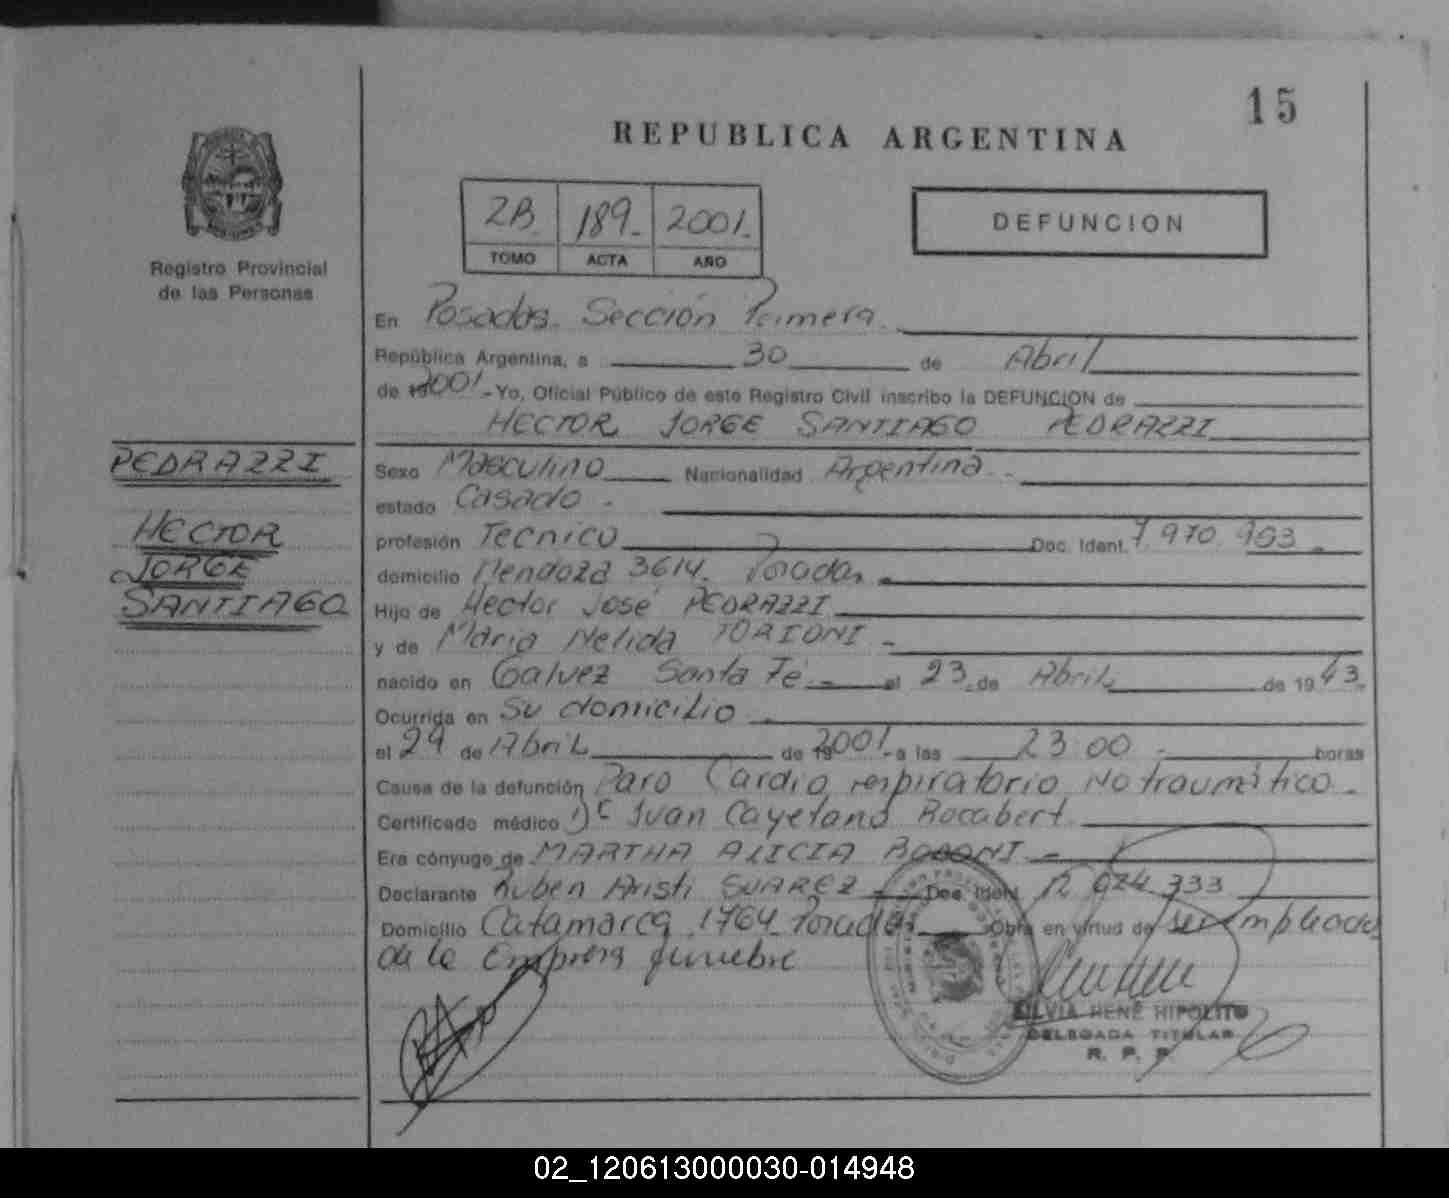 15
REPUBLICA ARGENTINA
2B. 189. 2001.
TOMO ACTA AÑO
DEFUNCION
Registro Provincial
de las Personas
En Posadas. Sección Primera.
República Argentina, a 30 de Abril
de 19 2001.- Yo, Oficial Público de este Registro Civil inscribo la DEFUNCION de
HECTOR JORGE SANTIAGO PEDRAZZI
PEDRAZZI
HECTOR
JORGE
SANTIAGO
Sexo Masculino Nacionalidad Argentina.-
estado Casado.-
profesión Tecnico Doc. Ident. 7.970.903.-
domicilio Mendoza 3614. Posadas.
Hijo de Hector José PEDRAZZI
y de Maria Nelida TORIONI.-
nacido en Galvez Santa Fé.- el 23 de Abril de 1943.
Ocurrida en Su domicilio.
el 29 de Abril de 19 2001.- a las 23 00.- horas
Causa de la defunción Paro Cardio respiratorio No traumático.-
Certificado médico Dr Juan Cayetano Rocabert.
Era cónyuge de MARTHA ALICIA.-
Declarante Ruben Aristi SUAREZ.- Doc. Ident. 333
Domicilio Catamarca 1764 Posadas. Obra en virtud de ser empleado
de la Empresa funebre
SILVIA RENÉ HIPOLITO
DELEGADA TITULAR
R. P. P.
02_120613000030-014948